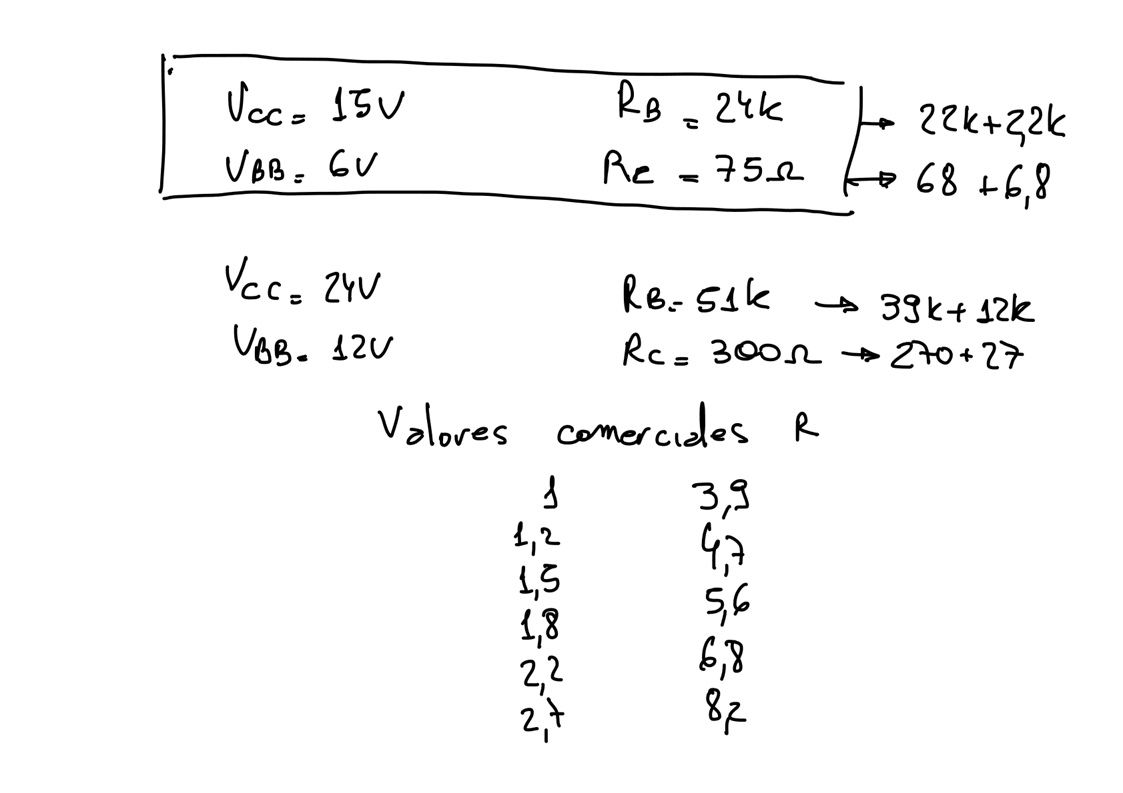 Vcc = 15V RB = 24k → 22k+2,2k
VBB = 6V Rc = 75Ω → 68 + 6,8
Vcc = 24V RB = 51k → 39k + 12k
VBB = 12V Rc = 300Ω → 270 + 27
Valores comerciales R
1 3,9
1,2 4,7
1,5 5,6
1,8 6,8
2,2 8,2
2,7